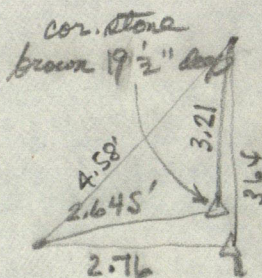 cor. stone
brown 19½" deep
4.58'
3.21
2.645'
3.64
2.76